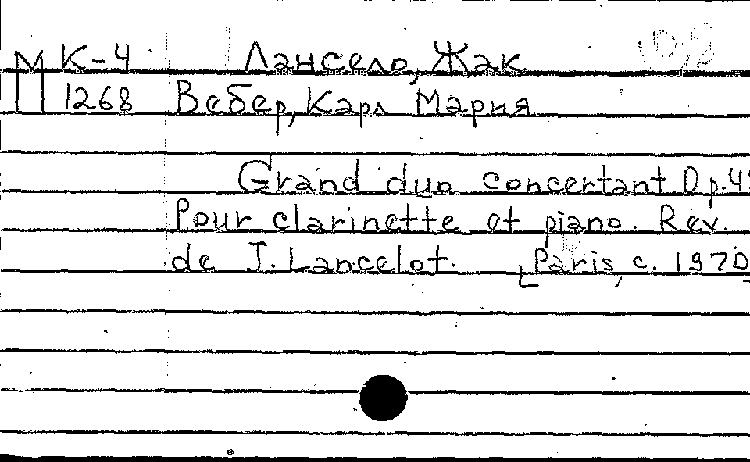 М К-4 Лансело, Жак
1268 Вебер, Карл Мария
Grand duo concertant Op.48
Pour clarinette et piano. Rev.
de J. Lancelot. [Paris, c. 1970]